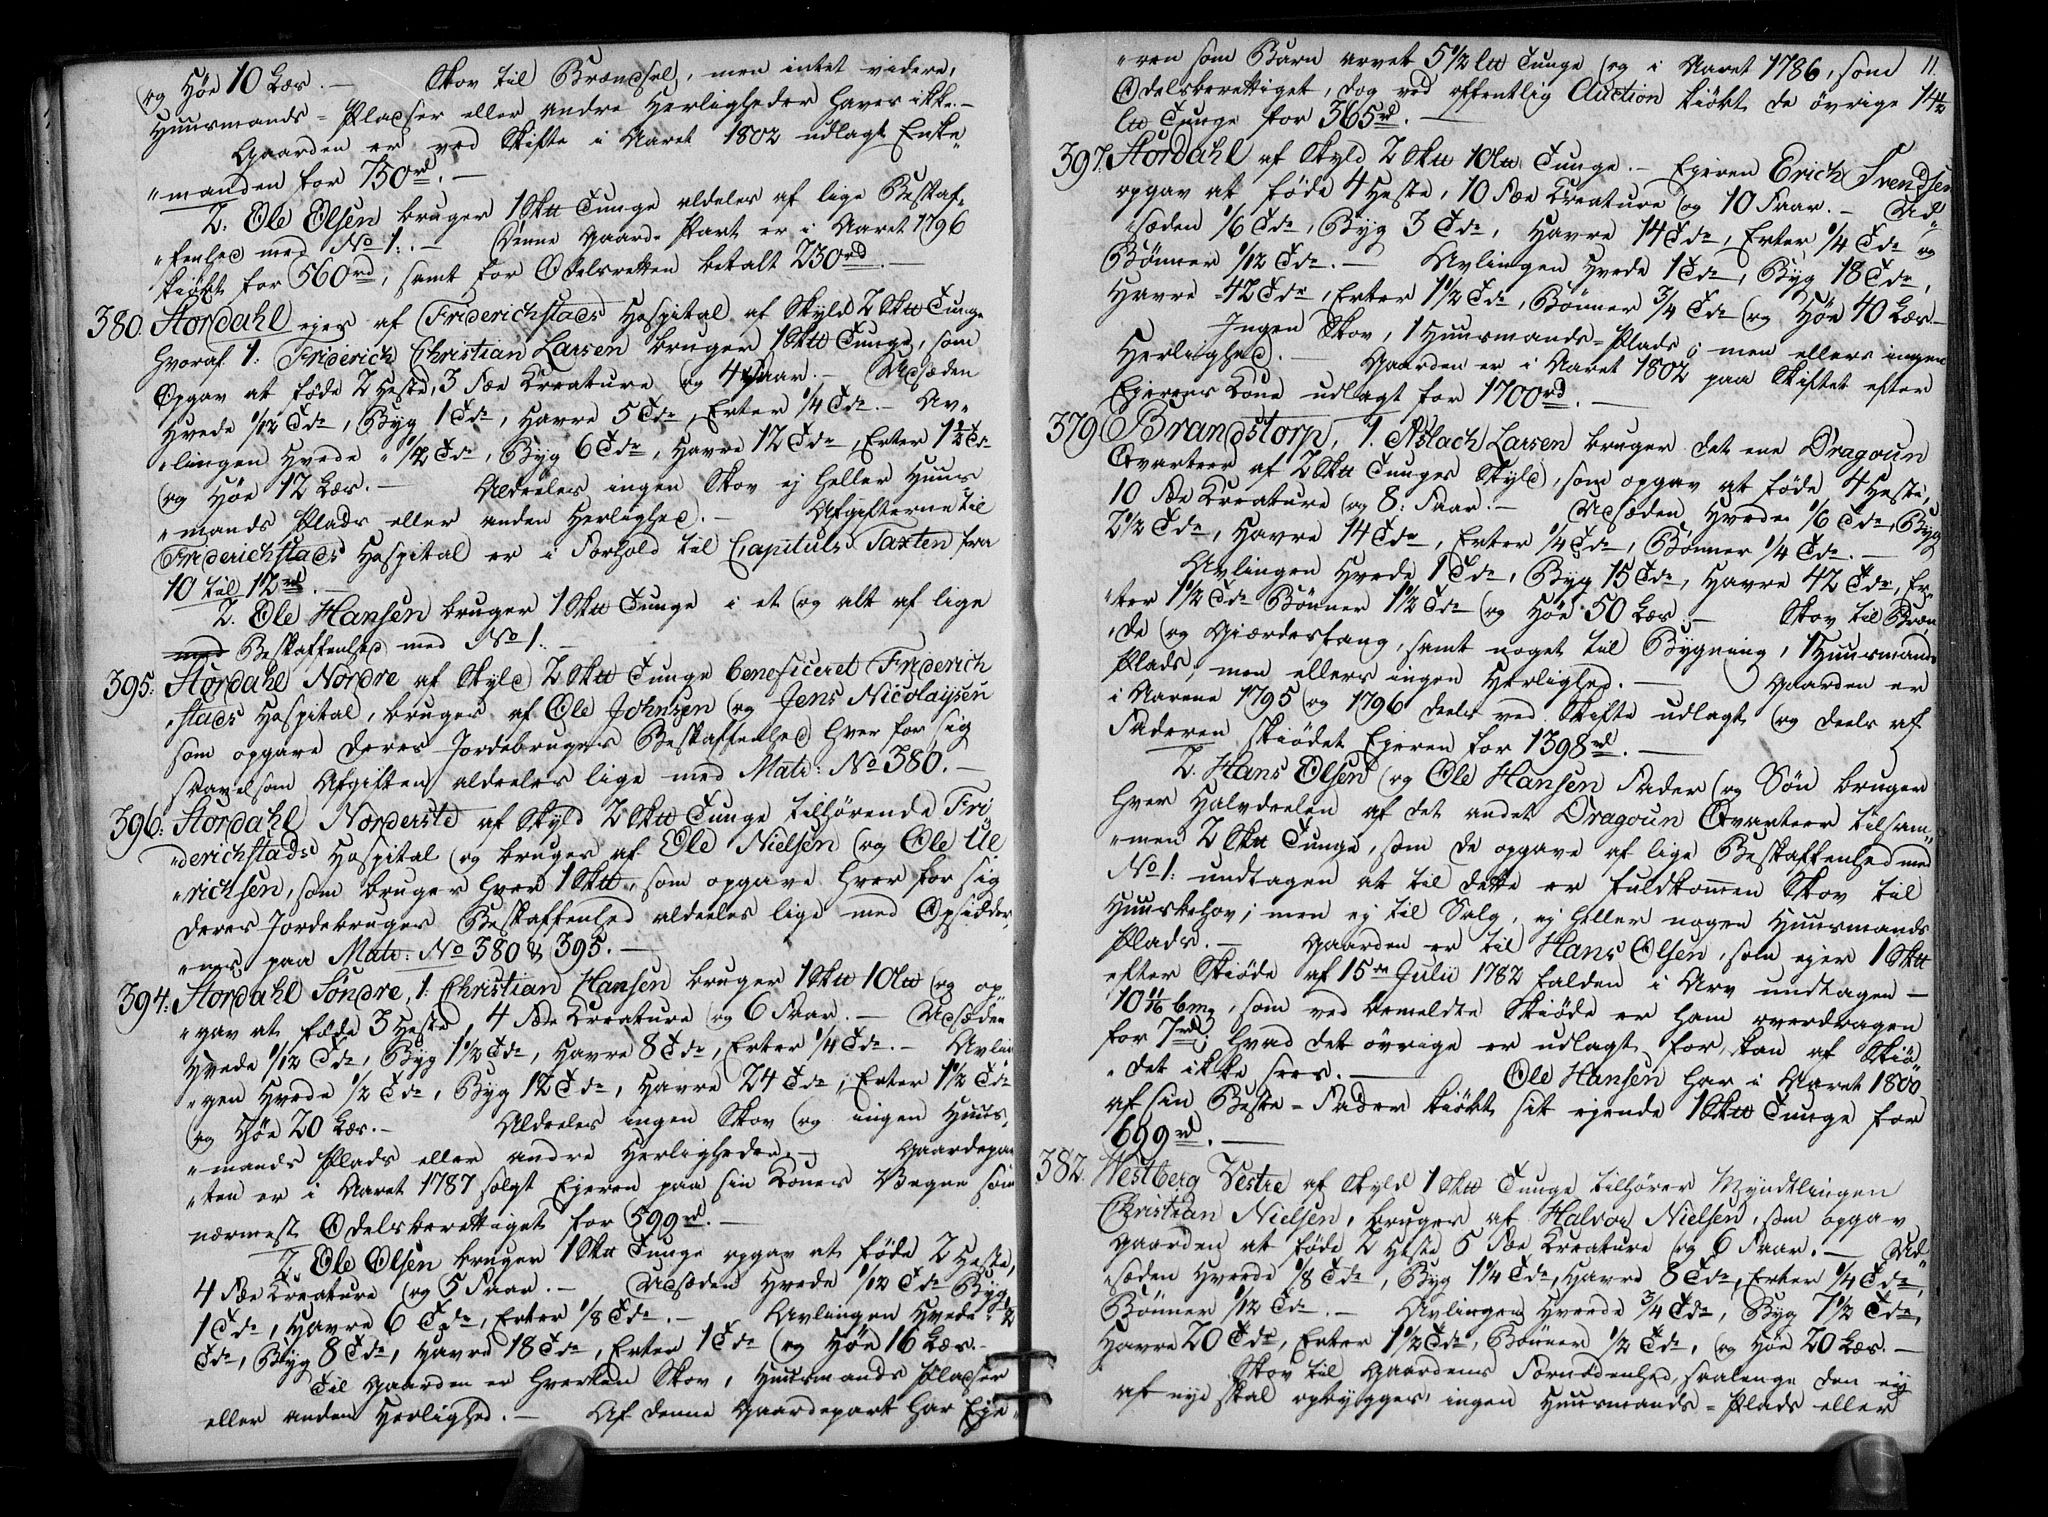 og Høe 10 Læs. — Skov til Brændsel, men intet videre,
Huusmands-Pladser eller andre Herligheder haves ikke. —
Gaarden er ved Skifte i Aaret 1802 udlagt Enke-
"manden for 750rd. —
2. Ole Olsen bruger 1 Sk℔ Tunge aldeles af lige Beskaf-
"fenhed med No 1. — Denne Gaard-Part er i Aaret 1796
skiødt for 560rd, samt for Odelsretten betalt 230rd. —
380. Stordahl ejes af Friderichstads Hospital af Skyld 2 Sk℔ Tunge
hvoraf 1: Friderich Christian Larsen bruger 1 Sk℔ Tunge, som
Opgav at føde 2 Heste, 3 Fæe Kreature og 4 Faar. — Udsæden
Hvede 1/12 Tdr, Byg 1 Tdr, Havre 5 Tdr, Erter 1/4 Tdr. — Av-
"lingen Hvede 1/2 Tdr, Byg 6 Tdr, Havre 12 Tdr, Erter 1 1/2 Tdr
og Høe 12 Læs. — Aldeeles ingen Skov ej heller Huus
"mands Plads eller anden Herlighed. — Afgifterne til
Friderichstads Hospital er i Forhold til Capituls Taxten fra
10 til 12rd. —
2. Ole Hansen bruger 1 Sk℔ Tunge i et og alt af lige
med Beskaffenhed med No 1. —
395: Stordahl Nordre af Skyld 2 Sk℔ Tunge beneficeret Friderich
"stads Hospital, bruges af Ole Johnsen og Jens Nicolaysen
som opgave deres Jordebruges Beskaffenhed hver for sig
saavelsom Afgiften aldeeles lige med Matr: No 380. —
396: Stordahl Norderste af Skyld 2 Sk℔ Tunge tilhørende Fri
"derichstads Hospital og bruges af Ole Nielsen og Ole Ul
"richsen, som bruger hver 1 Sk℔, som opgave hver for sig
deres Jordebruges Beskaffenhed aldeeles lige med Opsidder-
"nes paa Matr: No 380 & 395. —
394: Stordahl Søndre, 1: Christian Hansen bruger 1 Sk℔ 10 l℔ og op
"gav at føde 3 Heste, 4 Fæe Kreature og 6 Faar. — Udsæden
Hvede 1/12 Tdr, Byg 1 1/2 Tdr, Havre 8 Tdr, Erter 1/4 Tdr. — Avlin
"gen Hvede 1/2 Tdr, Byg 12 Tdr, Havre 24 Tdr, Erter 1 1/2 Tdr
og Høe 20 Læs. — Aldeeles ingen Skov og ingen Huus-
"mands Plads eller andre Herligheder. — Gaardepar
"ten er i Aaret 1787 solgt Ejeren paa sin Kones Vegne som
nærmest Odelsberettiget for 599rd. —
2. Ole Olsen bruger 1 Sk℔ Tunge opgav at føde 2 Heste,
4 Fæe Kreature og 5 Faar. — Udsæden Hvede 1/12 Tdr Byg
1 Tdr, Havre 6 Tdr, Erter 1/8 Tdr. — Avlingen Hvede 1/2
Tdr, Byg 8 Tdr, Havre 18 Tdr, Erter 1 Tdr og Høe 16 Læs. —
Til Gaarden er hverken Skov, Huusmands Pladser
eller anden Herlighed. — Af denne Gaardepart har Eje-
11
"ren som Barn arvet 5 1/2 l℔ Tunge og i Aaret 1786, som
Odelsberettiget, dog ved offentlig Auction kiøbt de øvrige 14 1/2
l℔ Tunge for 365rd. —
397. Stordahl af Skyld 2 Sk℔ 10 l℔ Tunge. — Ejeren Erich Svendsen
opgav at føde 4 Heste, 10 Fæe Kreature og 10 Faar. — Ud-
"sæden 1/6 Tdr, Byg 3 Tdr, Havre 14 Tdr, Erter 1/4 Tdr og
Bønner 1/12 Tdr. — Avlingen Hvede 1 Tdr, Byg 18 Tdr,
Havre 42 Tdr, Erter 1 1/2 Tdr, Bønner 3/4 Tdr og Høe 40 Læs. —
Ingen Skov, 1 Huusmands-Plads; men ellers ingen
Herlighed. — Gaarden er i Aaret 1802 paa Skiftet efter
Ejerens Kone udlagt for 1700rd. —
379 Brandstorp, 1. Aslach Larsen bruger det ene Dragoun
Qvarteer af 2 Sk℔ Tunges Skyld, som opgav at føde 4 Heste,
10 Fæe Kreature og 8: Faar. — Udsæden Hvede 1/6 Tdr, Byg
2 1/2 Tdr, Havre 14 Tdr, Erter 1/4 Tdr, Bønner 1/4 Tdr. —
Avlingen Hvede 1 Tdr, Byg 15 Tdr, Havre 42 Tdr, Er-
"ter 1 1/2 Tdr Bønner 1 1/2 Tdr og Høe 50 Læs. — Skov til Bræn
"de og Giærdesfang, samt noget til Bygning, 1 Huusmands
Plads, men ellers ingen Herlighed. — Gaarden er
i Aarene 1795 og 1796 deels ved Skifte udlagt og deels af
Faderen skiødet Ejeren for 1398rd. —
2. Hans Olsen og Ole Hansen Fader og Søn bruger
hver Halvdeelen af det andet Dragoun Qvarteer tilsam-
"men 2 Sk℔ Tunge, som de opgave af lige Beskaffenhed med
No 1: undtagen at til dette er fuldkommen Skov til
Huusbehov; men ej til Salg, ej heller nogen Huusmands
Plads. — Gaarden er til Hans Olsen, som ejer 1 Sk℔
efter Skiøde af 15de Julii 1782 falden i Arv undtagen —
10 11/16 bmg, som ved bemeldte Skiøde er ham overdragen
for 7rd; hvad det øvrige er udlagt for, kan af Skiø-
"det ikke sees. — Ole Hansen har i Aaret 1800
af sin Beste-Fader kiøbt sit ejende 1 Sk℔ Tunge for
699rd. —
382. Westberg Vestre af Skyld 1 Sk℔ Tunge tilhører Myndtlingen
Christian Nielsen, bruges af Halvor Nielsen, som opgav
Gaarden at føde 2 Heste 5 Fæe Kreature og 6 Faar. — Ud-
"sæden Hvede 1/8 Tdr, Byg 1 1/4 Tdr, Havre 8 Tdr, Erter 1/4 Tdr,
Bønner 1/12 Tdr. — Avlingen Hvede 3/4 Tdr, Byg 7 1/2 Tdr,
Havre 20 Tdr, Erter 1 1/2 Tdr, Bønner 1/2 Tdr, og Høe 20 Læs. —
Skov til Gaardens Fornødenhed, saalenge den ej
af nye skal opbygges, ingen Huusmands-Plads eller